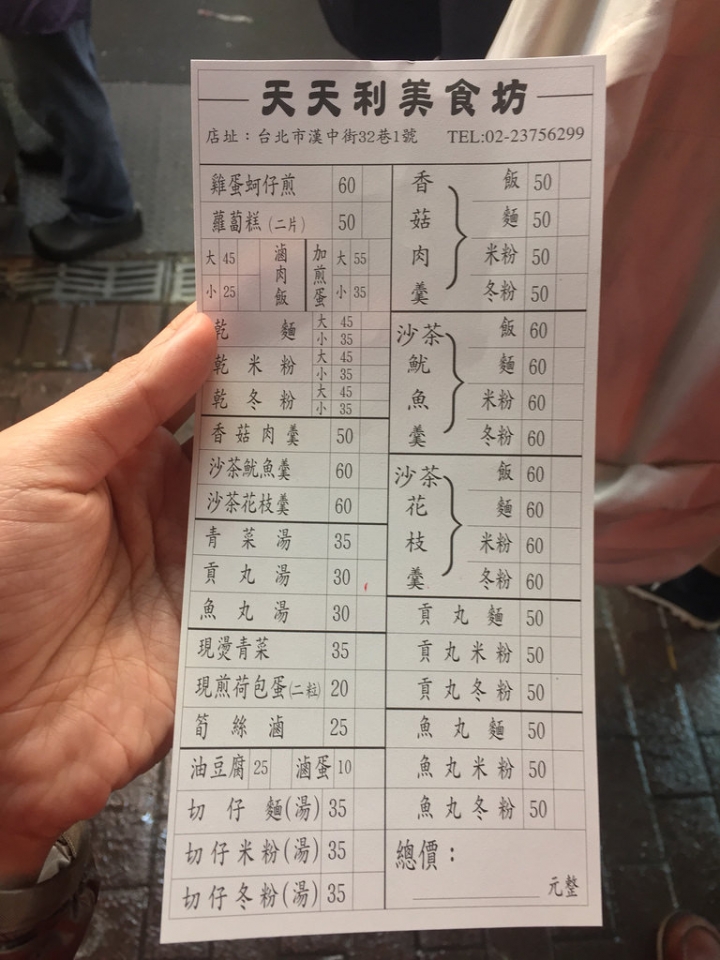 天天利美食坊
店址：台北市漢中街32巷1號 TEL:02-23756299
雞蛋蚵仔煎 60
蘿蔔糕(二片) 50
滷肉飯 大 45 小 25
加煎蛋 大 55 小 35
乾麵 大 45 小 35
乾米粉 大 45 小 35
乾冬粉 大 45 小 35
香菇肉羹 50
沙茶魷魚羹 60
沙茶花枝羹 60
青菜湯 35
貢丸湯 30
魚丸湯 30
現燙青菜 35
現煎荷包蛋(二粒) 20
筍絲滷 25
油豆腐 25 滷蛋 10
切仔麵(湯) 35
切仔米粉(湯) 35
切仔冬粉(湯) 35
香菇肉羹
飯 50
麵 50
米粉 50
冬粉 50
沙茶魷魚羹
飯 60
麵 60
米粉 60
冬粉 60
沙茶花枝羹
飯 60
麵 60
米粉 60
冬粉 60
貢丸麵 50
貢丸米粉 50
貢丸冬粉 50
魚丸麵 50
魚丸米粉 50
魚丸冬粉 50
總價：
元整